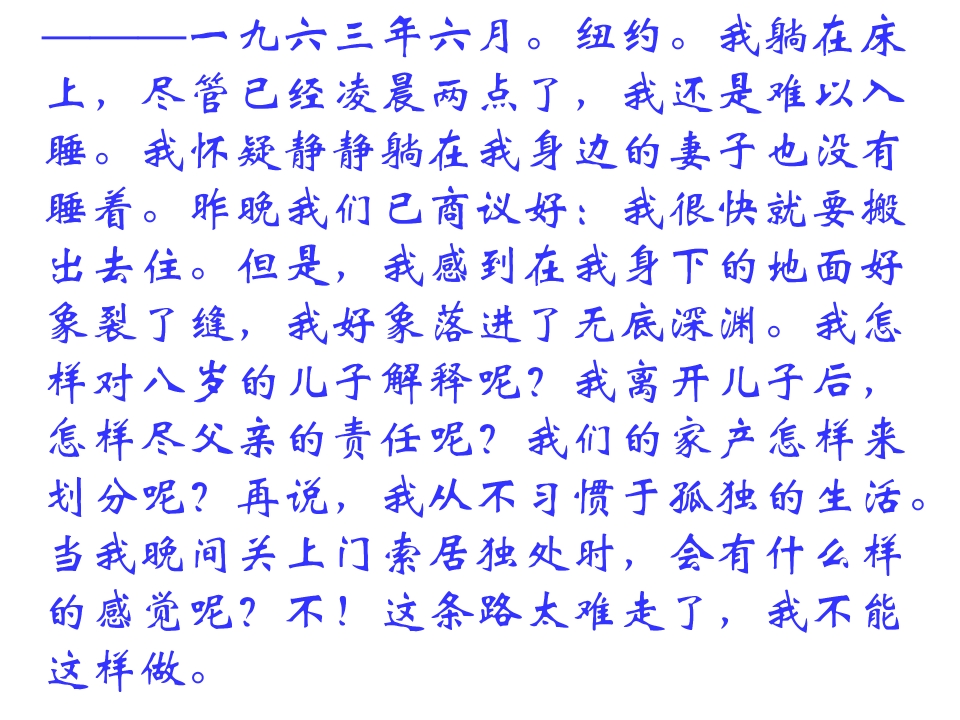 ————一九六三年六月。纽约。我躺在床
上，尽管已经凌晨两点了，我还是难以入
睡。我怀疑静静躺在我身边的妻子也没有
睡着。昨晚我们已商议好：我很快就要搬
出去住。但是，我感到在我身下的地面好
象裂了缝，我好象落进了无底深渊。我怎
样对八岁的儿子解释呢？我离开儿子后，
怎样尽父亲的责任呢？我们的家产怎样来
划分呢？再说，我从不习惯于孤独的生活。
当我晚间关上门索居独处时，会有什么样
的感觉呢？不！这条路太难走了，我不能
这样做。